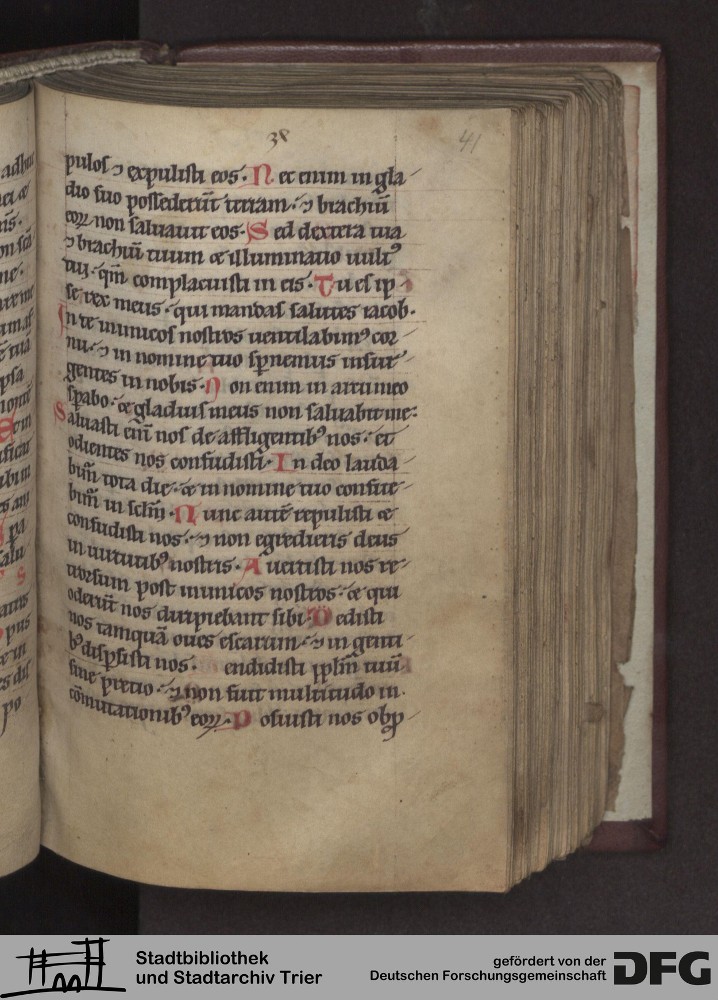 38
41
pulos ⁊ expulisti eos. Nec enim in gla
dio suo possederūt terram. ⁊ brachiū
eoꝝ non saluauit eos. Sed dextera tua
⁊ brachiū tuum et illuminatio uult᷒
tui. qm̄ complacuisti in eis. Tu es ip
se rex meus. qui mandas salutes iacob.
In te inimicos nostros uentilabim᷒ cor
nu. ⁊ in nomine tuo sp̄nemus insur
gentes in nobis. Non enim in arcu meo
sperabo. et gladius meus non saluabit me:
Saluasti eni̅ nos de affligentib᷒ nos. et
odientes nos confudisti. In deo lauda
bim̄ tota die. et in nomine tuo confite
bim̄ in sclm̄. Nunc autē repulisti et
confudisti nos. ⁊ non egredieris deus
in uirtutib᷒ nostris. Auertisti nos re
trorsum post inimicos nostros. et qui
oderūt nos diripiebant sibi. Dedisti
nos tamquā oues escarum. ⁊ in genti
b᷒ disp̄sisti nos. endidisti pplm̄ tuū
sine precio. ⁊ non fuit multitudo in
cōmutationib᷒ eoꝝ. Posuisti nos obp̄
Stadtbibliothek
und Stadtarchiv Trier
gefördert von der
Deutschen Forschungsgemeinschaft
DFG